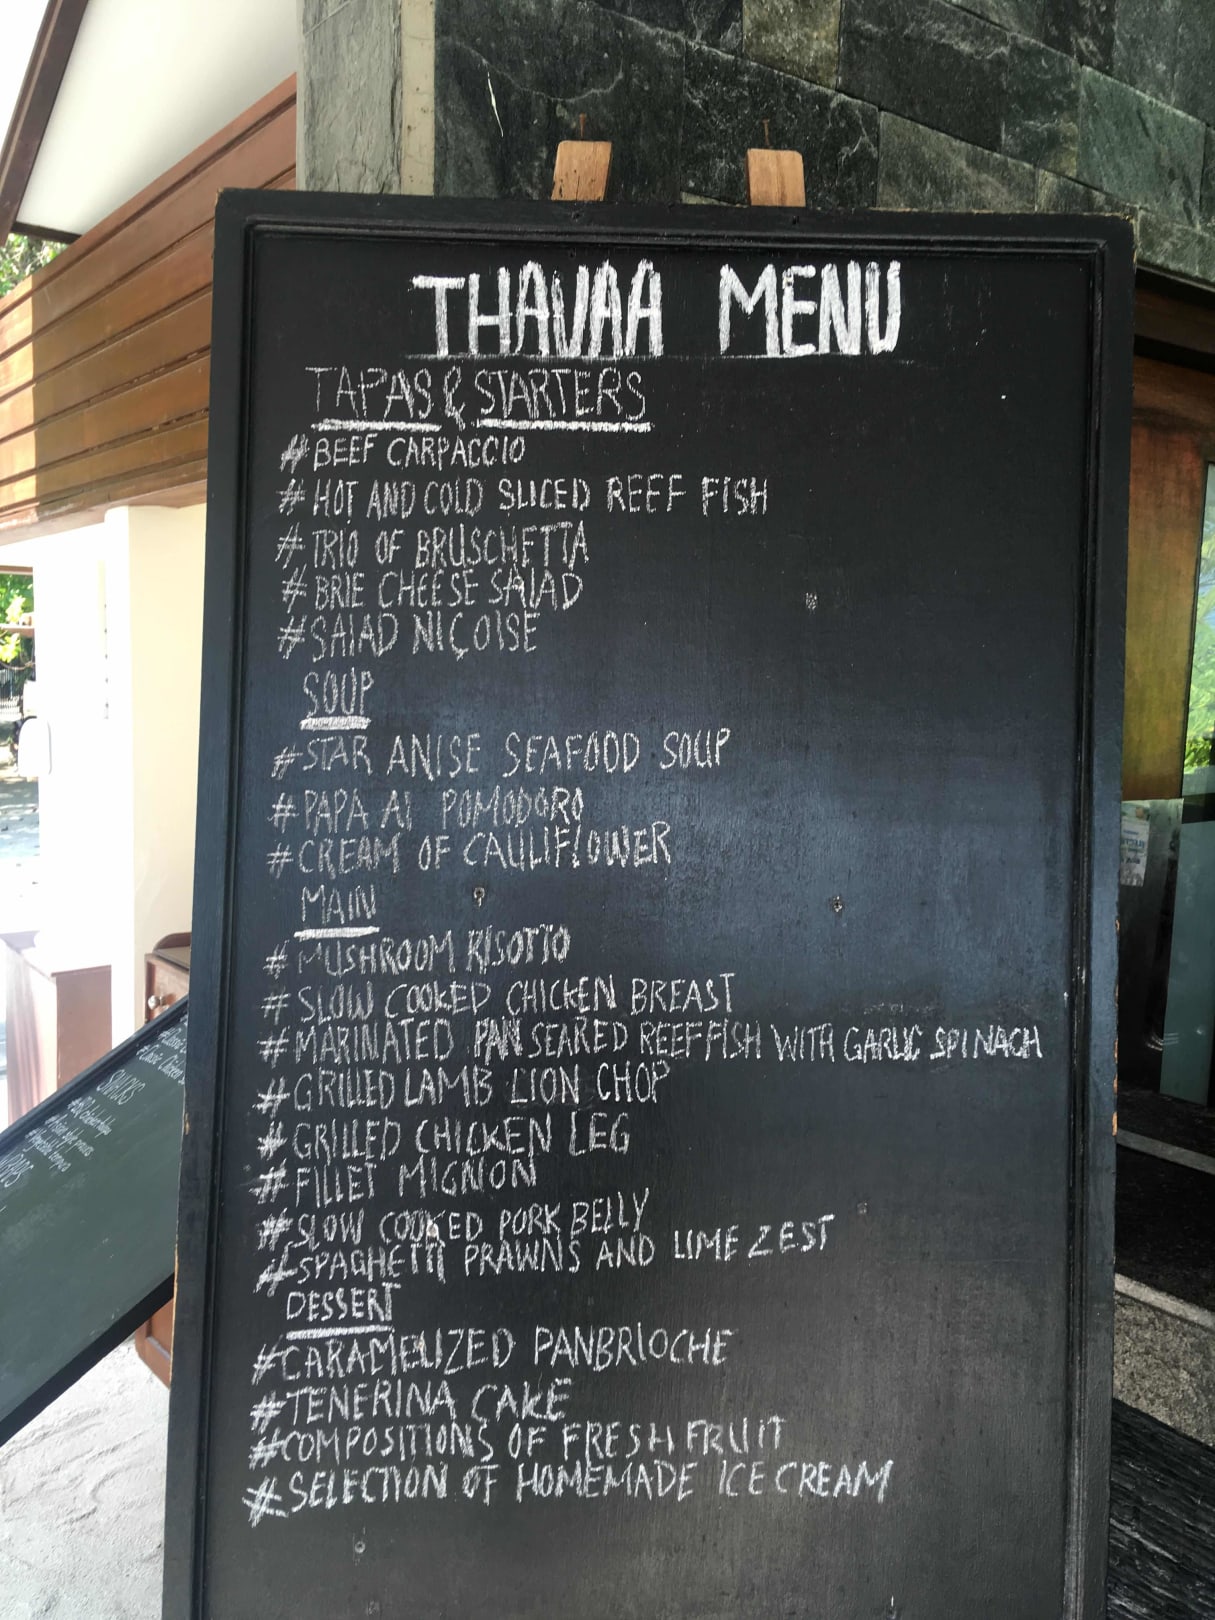 THAVAA MENU
TAPAS & STARTERS
# BEEF CARPACCIO
# HOT AND COLD SLICED REEF FISH
# TRIO OF BRUSCHETTA
# BRIE CHEESE SALAD
# SALAD NIÇOISE
SOUP
# STAR ANISE SEAFOOD SOUP
# PAPA AL POMODORO
# CREAM OF CAULIFLOWER
MAIN
# MUSHROOM RISOTTO
# SLOW COOKED CHICKEN BREAST
# MARINATED PAN SEARED REEF FISH WITH GARLIC SPINACH
# GRILLED LAMB LION CHOP
# GRILLED CHICKEN LEG
# FILLET MIGNION
# SLOW COOKED PORK BELLY
# SPAGHETTI PRAWNS AND LIME ZEST
DESSERT
# CARAMELIZED PANBRIOCHE
# TENERINA CAKE
# COMPOSITIONS OF FRESH FRUIT
# SELECTION OF HOMEMADE ICE CREAM
SNACKS